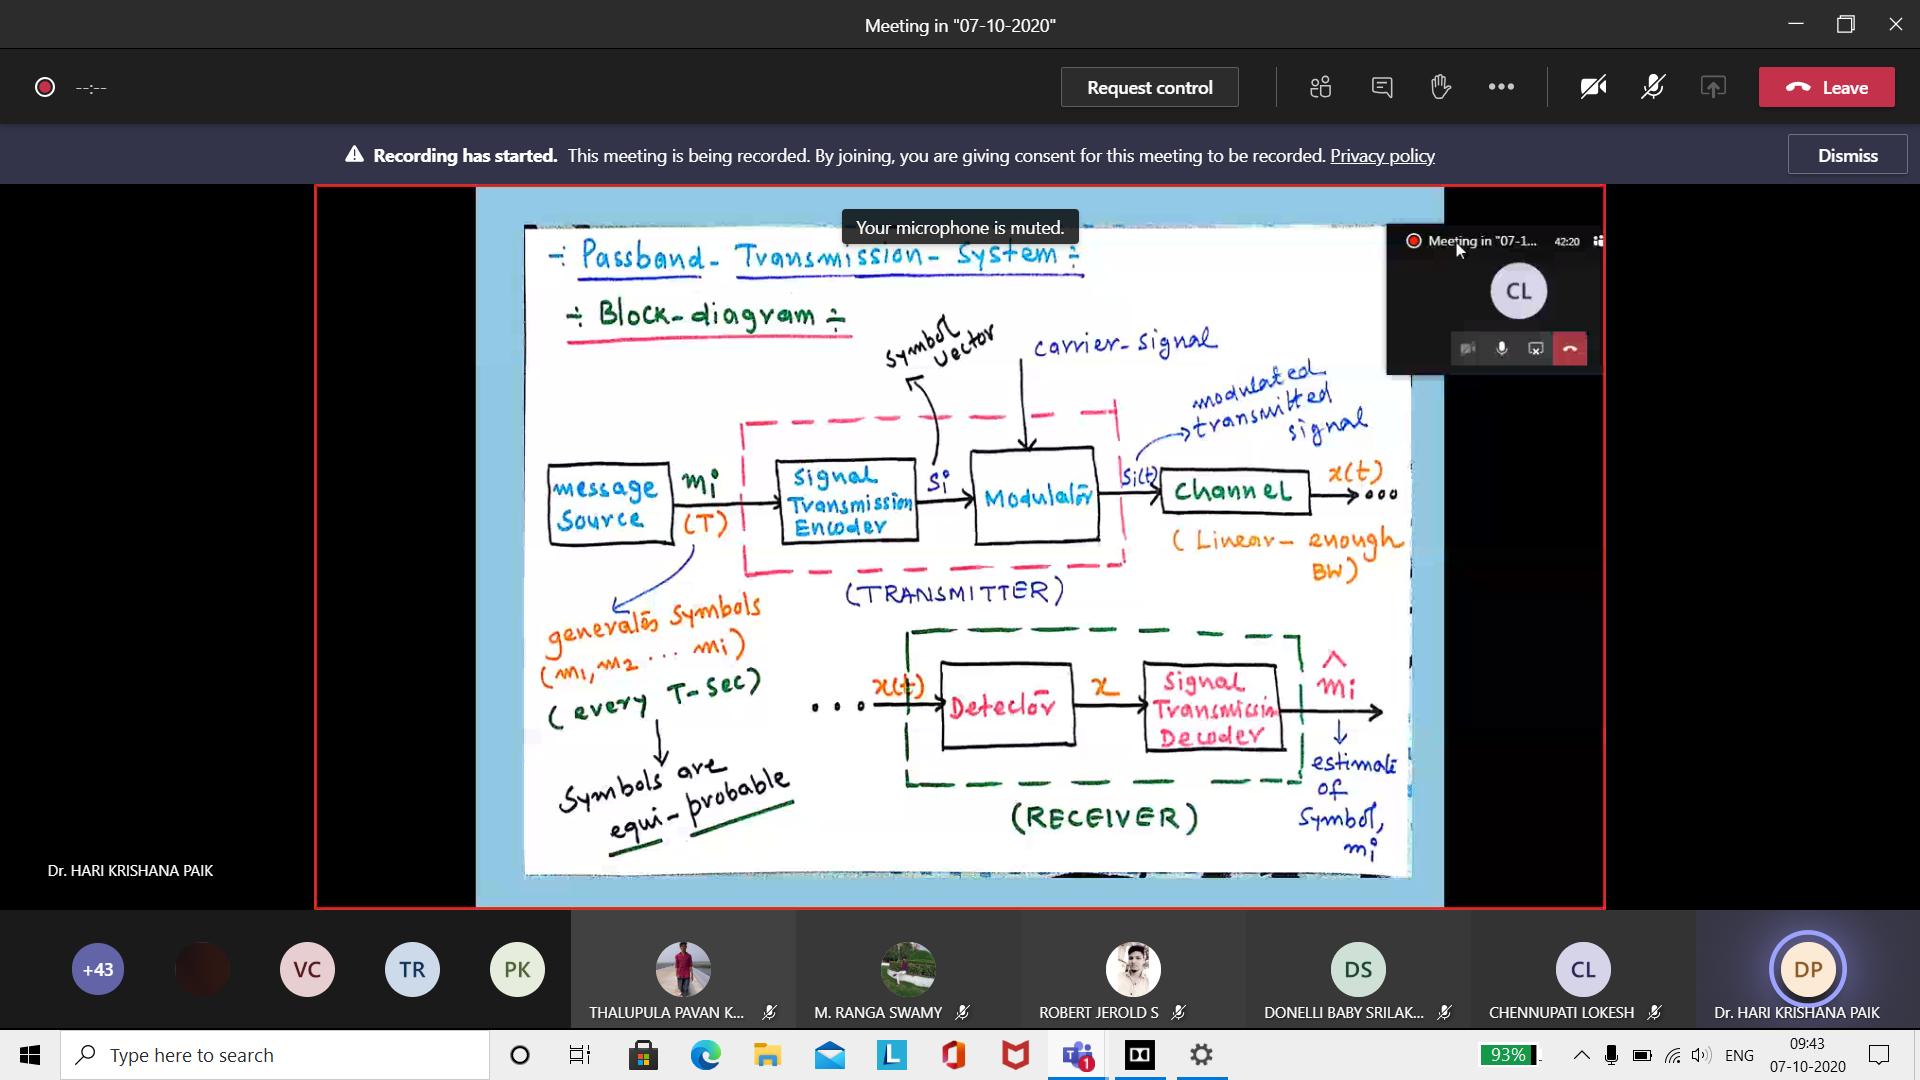 Meeting in "07-10-2020"
--:--
Request control
Leave
Recording has started. This meeting is being recorded. By joining, you are giving consent for this meeting to be recorded. Privacy policy
Dismiss
Your microphone is muted.
Meeting in "07-1... 42:20
CL
÷ Passband- Transmission- System ÷
÷ Block-diagram ÷
symbol
vector
carrier-signal
modulated
transmitted
signal
message
Source
mi
(T)
Signal
Transmission
Encoder
Si
Modulator
Si(t)
Channel
x(t)
(Linear- enough
BW)
(TRANSMITTER)
generates symbols
(m1, m2 ... mi)
(every T-sec)
Symbols are
equi-probable
x(t)
Detector
x
Signal
Transmission
Decoder
^
mi
(RECEIVER)
estimate
of
Symbol,
mi
Dr. HARI KRISHANA PAIK
+43
VC
TR
PK
THALUPULA PAVAN K...
M. RANGA SWAMY
ROBERT JEROLD S
DS
DONELLI BABY SRILAK...
CL
CHENNUPATI LOKESH
DP
Dr. HARI KRISHANA PAIK
Type here to search
L
1
93%
ENG
09:43
07-10-2020